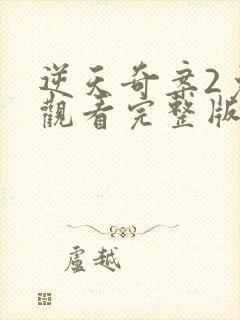 逆天奇案2
觀看完整版
盧越